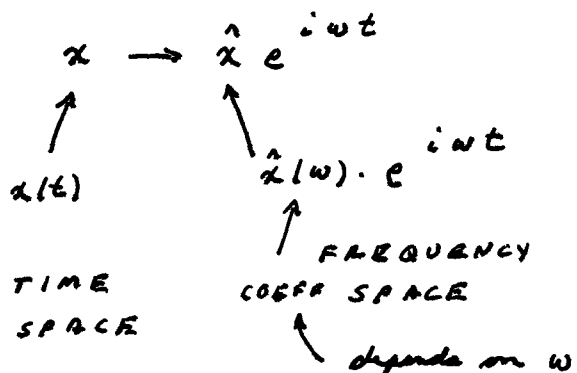 x → x̂ e^{iωt}
x(t)
x̂(ω) · e^{iωt}
TIME
SPACE
FREQUENCY
COEFF SPACE
depends on ω